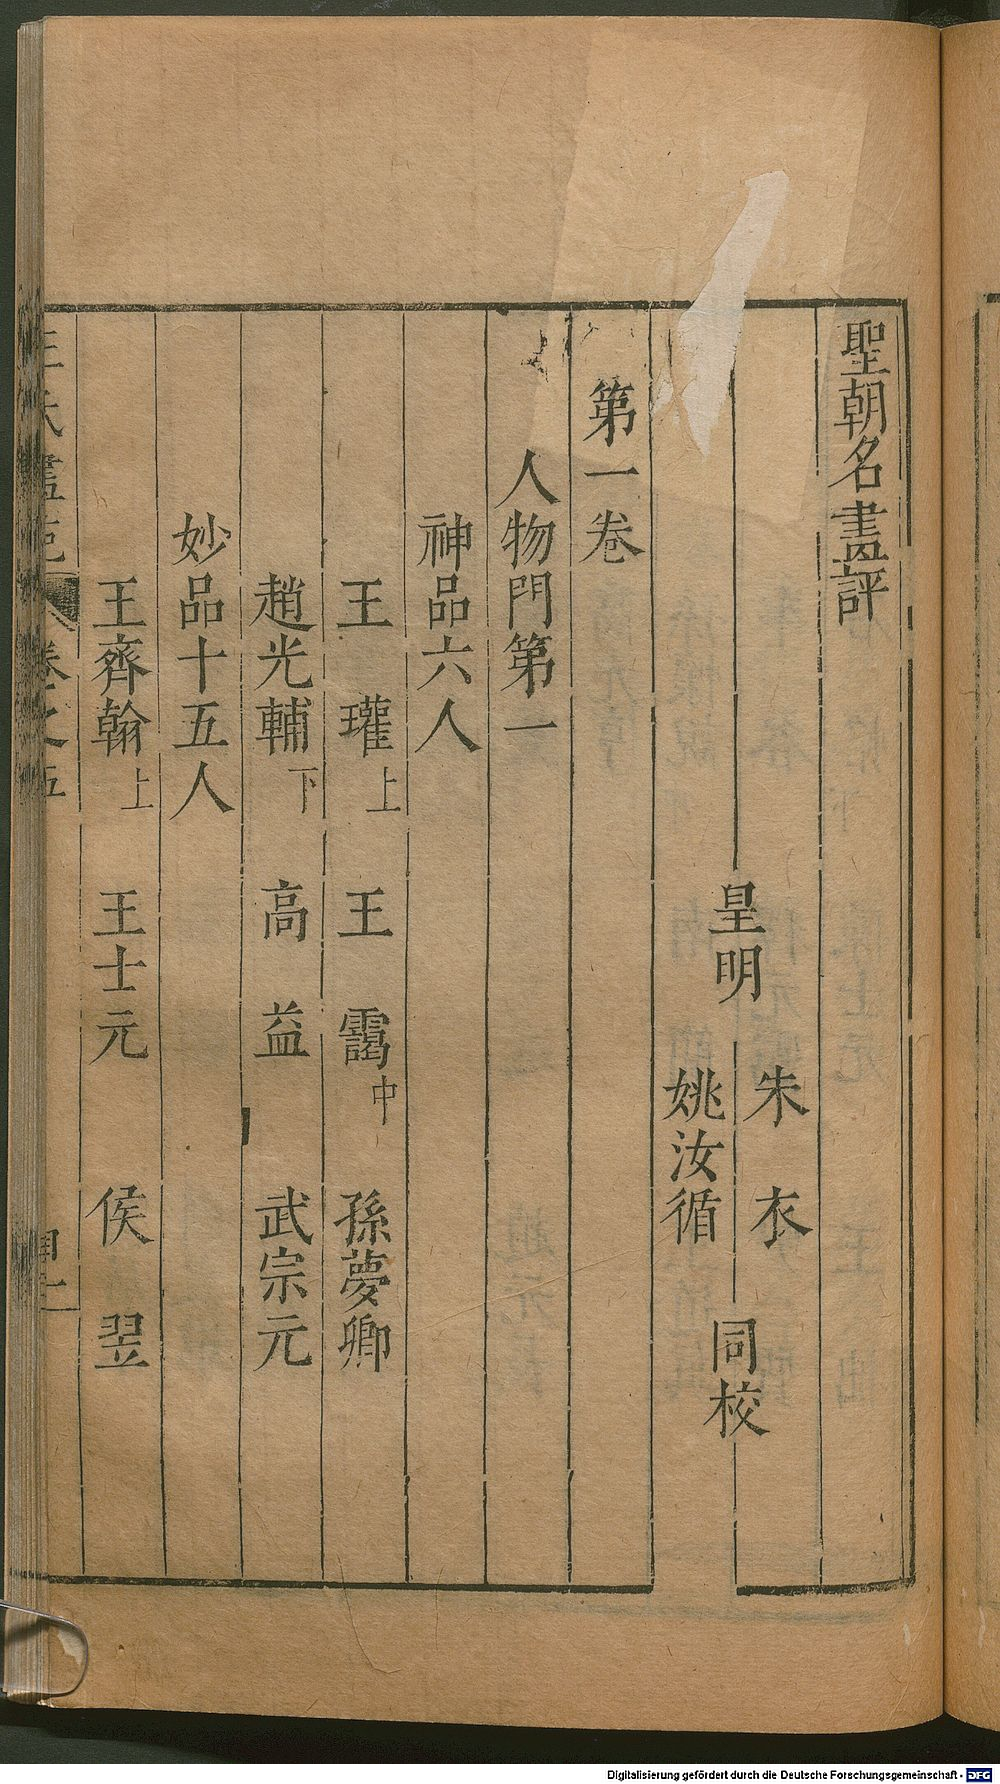 聖朝名畫評
皇明 朱衣 同校
姚汝循
第一卷
人物門第一
神品六人
王瓘上 王靄中 孫夢卿
趙光輔下 高益 武宗元
妙品十五人
王齊翰上 王士元 侯翌
王氏畫苑 卷之五
Digitalisierung gefördert durch die Deutsche Forschungsgemeinschaft - DFG